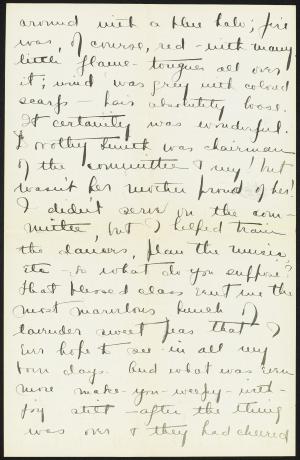 around with a blue halo; fire
was, of course, red - with many
little flame-tongues all over
it; wind was grey with colored
scarfs - hair absolutely loose.
It certainity was wonderful.
Dorothy Smith was chairman
of the committee & my! but
wasn't her mother proud of her!
I didn't serve on the com-
mittee, but I helped train
the dancers, plan the music,
etc - so what do you suppose?
That blessed class sent me the
most marvelous bunch of
lavender sweet peas that I
ever hope to see in all my
born days. And what was even
more make-you-weepy-with-
joy still - after the thing
was over & they had cheered